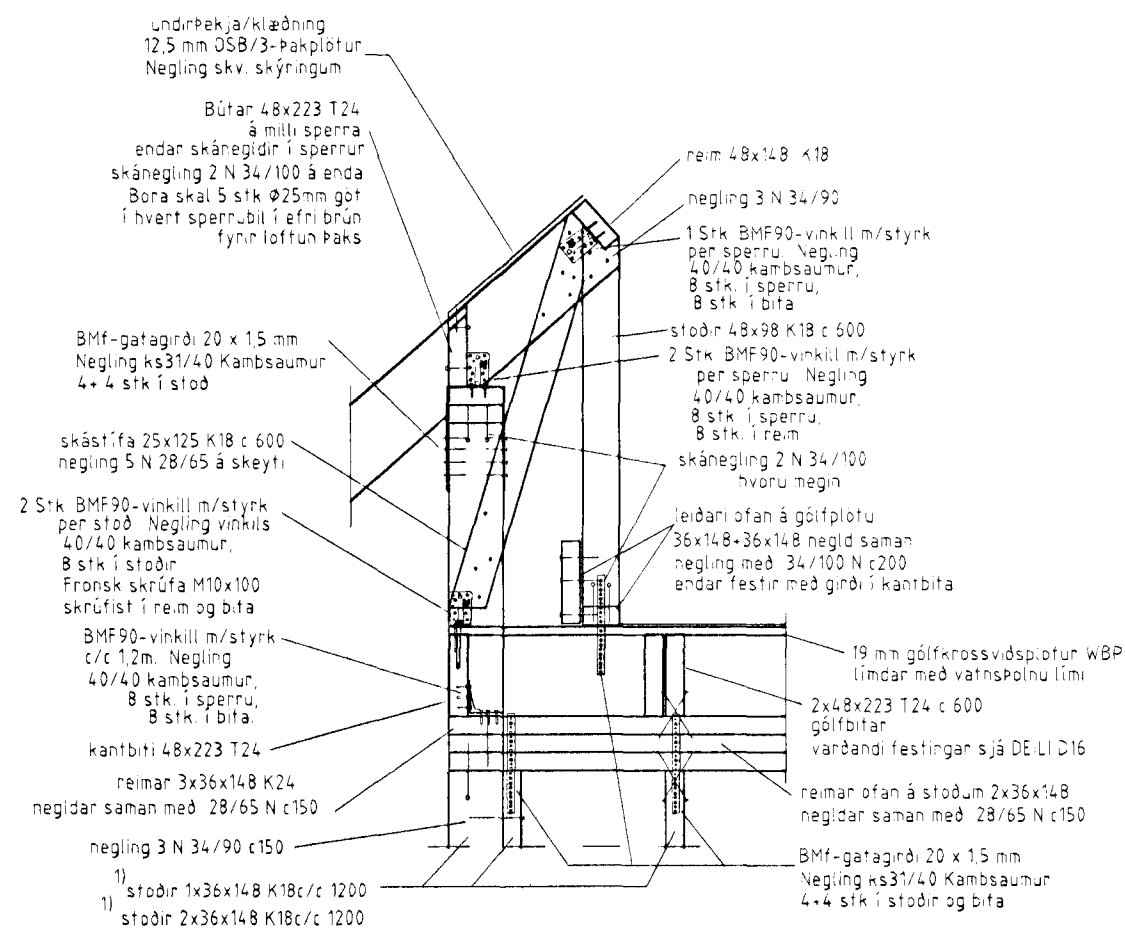 undirþekja/klæðning
12,5 mm OSB/3-Þakplötur
Negling skv. skýringum
Bútar 48x223 T24
á milli sperra
endar skánegldir í sperrur
skánegling 2 N 34/100 á enda
Bora skal 5 stk Φ25mm göt
í hvert sperrubil í efri brún
fyrir loftun Þaks
BMf-gatagirði 20 x 1,5 mm
Negling ks31/40 Kambsaumur
4+ 4 stk í stoð
skástífa 25x125 K18 c 600
negling 5 N 28/65 á skeyti
2 Stk BMF90-vinkill m/styrk
per stoð Negling vinkils
40/40 kambsaumur,
8 stk í stoðir
Fronsk skrúfa M10x100
skrúfist í reim og bita
BMF90-vinkill m/styrk
c/c 1,2m. Negling
40/40 kambsaumur,
8 stk. í sperru,
8 stk. í bita.
kantbiti 48x223 T24
reimar 3x36x148 K24
negldar saman með 28/65 N c150
negling 3 N 34/90 c150
1)
stoðir 1x36x148 K18c/c 1200
1)
stoðir 2x36x148 K18c/c 1200
reim 48x148 K18
negling 3 N 34/90
1 Stk BMF90-vinkill m/styrk
per sperru. Negling
40/40 kambsaumur,
8 stk. í sperru,
8 stk í bita
stoðir 48x98 K18 c 600
2 Stk BMF90-vinkill m/styrk
per sperru Negling
40/40 kambsaumur,
8 stk í sperru,
8 stk. í reim
skánegling 2 N 34/100
hvoru megin
leiðari ofan á gólfplötu
36x148+36x148 negld saman
negling með 34/100 N c200
endar festir með girði í kantbita
19 mm gólfkrossviðsplötur WBP
límdar með vatnsþolnu lími
2x48x223 T24 c 600
gólfbitar
varðandi festingar sjá DEILI D16
reimar ofan á stoðum 2x36x148
negldar saman með 28/65 N c150
BMf-gatagirði 20 x 1,5 mm
Negling ks31/40 Kambsaumur
4+4 stk í stoðir og bita